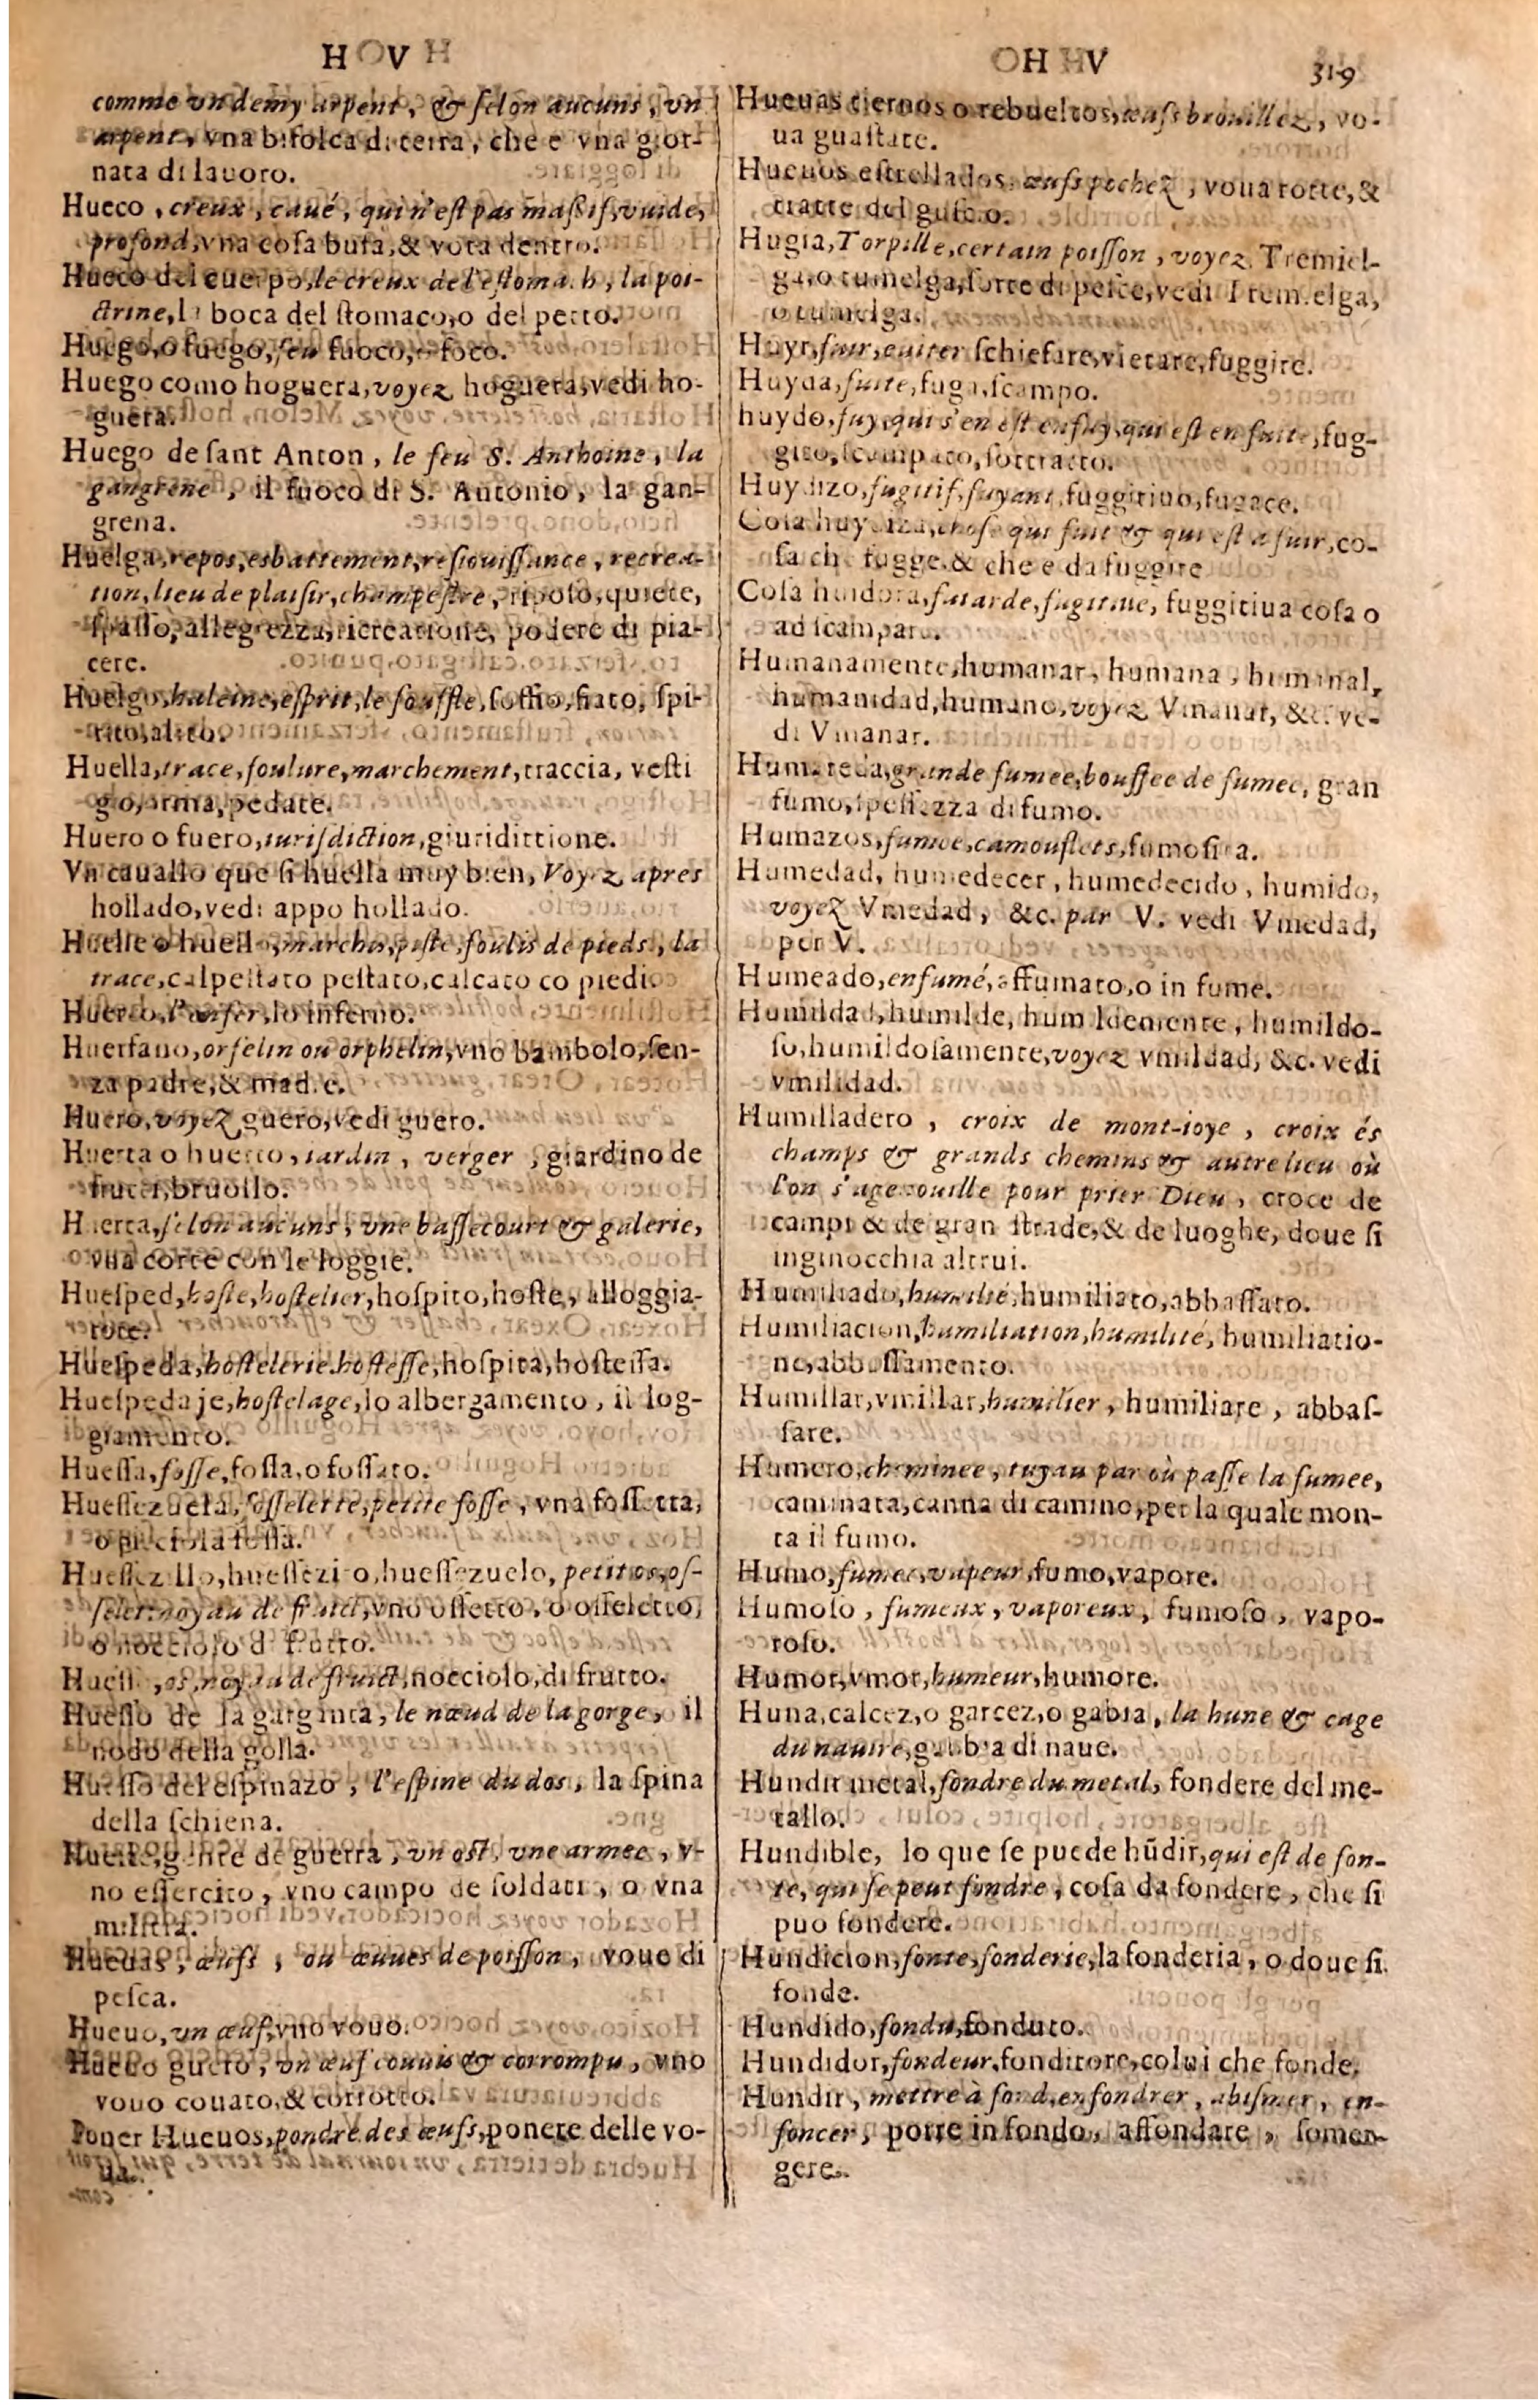 H V
H V
319
comme vn demy arpent, & ſelon aucuns, vn
arpent, vna bifolca di terra, che e vna gior-
nata di lauoro.
Hueco, creux, caué, qui n'eſt pas maſsif, vuide,
profond, vna coſa buſa, & vota dentro.
Hueco del cuerpo, le creux de l'eſtomach, la poi-
ctrine, la boca del ſtomaco, o del petto.
Huego, o fuego, feu fuoco, o foco.
Huego como hoguera, voyez hoguera, vedi ho-
guera.
Huego de ſant Anton, le feu S. Anthoine, la
gangrene, il fuoco di S. Antonio, la gan-
grena.
Huelga, repos, esbattement, reſiouiſſance, recrea-
tion, lieu de plaiſir, champeſtre, ripoſo, quiete,
ſpaſſo, allegrezza, ricreatione, podere di pia-
cere.
Huelgo, haleine, eſprit, le ſouffle, ſoffio, fiato, ſpi-
rito, alito.
Huella, trace, foulure, marchement, traccia, veſti
gio, orma, pedate.
Huero o fuero, iuriſdiction, giuridittione.
Vn cauallo que ſi huella muy bien, Voyez apres
hollado, vedi appo hollado.
Huelle o huello, marche, piſte, foulis de pieds, la
trace, calpeſtato peſtato, calcato co piedi.
Huerco, l'enfer, lo inferno.
Huerfano, orfelin ou orphelin, vno bambolo, ſen-
za padre, & madre.
Huero, voyez guero, vedi guero.
Huerta o huerto, iardin, verger, giardino de
frutti, bruollo.
Huerta, ſelon aucuns, vne baſſecourt & galerie,
vna corte con le loggie.
Hueſped, hoſte, hoſtelier, hoſpito, hoſte, alloggia-
tore.
Hueſpeda, hoſtelerie, hoſteſſe, hoſpita, hoſteſſa.
Hueſpedaje, hoſtelage, lo albergamento, il log-
giamento.
Hueſſa, foſſe, foſſa, o foſſato.
Hueſſezuela, foſſelette, petite foſſe, vna foſſetta,
o picciola foſſa.
Hueſſezillo, hueſſezito, hueſſezuelo, petit os, oſ-
ſelet, noyau de fruict, vno oſſetto, o oſſeletto,
o nocciolo di frutto.
Hueſſo, os, noyau de fruict, nocciolo, di frutto.
Hueſſo de la garginta, le nœud de la gorge, il
nodo della golla.
Hueſſo del eſpinazo, l'eſpine du dos, la ſpina
della ſchiena.
Hueſte, gente de guerra, vn oſt, vne armee, v-
no eſſercito, vno campo de ſoldati, o vna
militia.
Hueuas, œufs, ou œuues de poiſſon, voue di
peſca.
Hueuo, vn œuf, vno vouo.
Hueuo guero, vn œuf couuis & corrompu, vno
vouo couato, & corrotto.
Poner Hueuos, pondre des œufs, ponere delle vo-
ua.
Hueuas tiernos o rebueltos, œufs brouillez, vo-
ua guaſtate.
Hueuos eſtrellados, œufs pochez, voua rotte, &
tratte del guſcio.
Hugia, Torpille, certain poiſſon, voyez Tremiel-
ga, o tumelga, ſorte di peſce, vedi Tremielga,
o tumelga.
Huyr, fuir, euiter ſchiefare, vietare, fuggire.
Huyda, fuite, fuga, ſcampo.
huydo, fuy, qui s'en eſt enfuy, qui eſt en fuite, fug-
gito, ſcampato, ſottratto.
Huydizo, fugitif, fuyant, fuggitiuo, fugace.
Coſa huydiza, choſe qui fuit & qui eſt a fuir, co-
ſa che fugge, & che e da fuggire
Coſa huidora, fuiarde, fugitiue, fuggitiua coſa o
ad ſcampare.
Humanamente, humanar, humana, humanal,
humanidad, humano, voyez Vmanar, &c. ve-
di Vmanar.
Humareda, grande fumee, bouffee de fumee, gran
fumo, ſpeſſezza di fumo.
Humazos, fumee, camouflets, fumoſita.
Humedad, humedecer, humedecido, humido,
voyez Vmedad, &c. par V. vedi Vmedad,
per V.
Humeado, enfumé, affumato, o in fume.
Humildad, humilde, humildemente, humildo-
ſo, humildoſamente, voyez vmildad, &c. vedi
vmilidad.
Humilladero, croix de mont-ioye, croix és
champs & grands chemins & autre lieu où
l'on s'agenouille pour prier Dieu, croce de
campi & de gran ſtrade, & de luoghe, doue ſi
inginocchia altrui.
Humiliado, humilié, humiliato, abbaſſato.
Humiliacion, humiliation, humilité, humiliatio-
ne, abbaſſamento.
Humillar, vmillar, humilier, humiliare, abbaſ-
ſare.
Humero, cheminee, tuyau par où paſſe la fumee,
caminata, canna di camino, per la quale mon-
ta il fumo.
Humo, fumee, vapeur, fumo, vapore.
Humoſo, fumeux, vaporeux, fumoſo, vapo-
roſo.
Humor, vmor, humeur, humore.
Huna, calcez, o garcez, o gabia, la hune & cage
du nauire, gabbia di naue.
Hundir metal, fondre du metal, fondere del me-
tallo.
Hundible, lo que ſe puede hũdir, qui eſt de fon-
te, qui ſe peut fondre, coſa da fondere, che ſi
puo fondere.
Hundicion, fonte, fonderie, la fonderia, o doue ſi
fonde.
Hundido, fondu, fonduto.
Hundidor, fondeur, fonditore, colui che fonde.
Hundir, mettre à fond, enfondrer, abiſmer, en-
foncer, porre in fondo, affondare, ſomer-
gere.